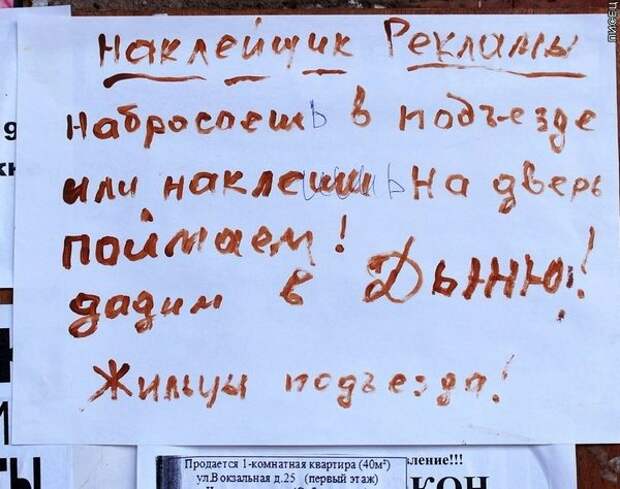 ПИСЕЦ
Наклейщик Рекламы
Набросаешь в подъезде
или наклеишь на дверь
поймаем!
дадим в Дыню!
Жильцы подъезда!
Продается 1-комнатная квартира (40м²)
ул.Вокзальная д.25 (первый этаж)
вление!!!
КОН